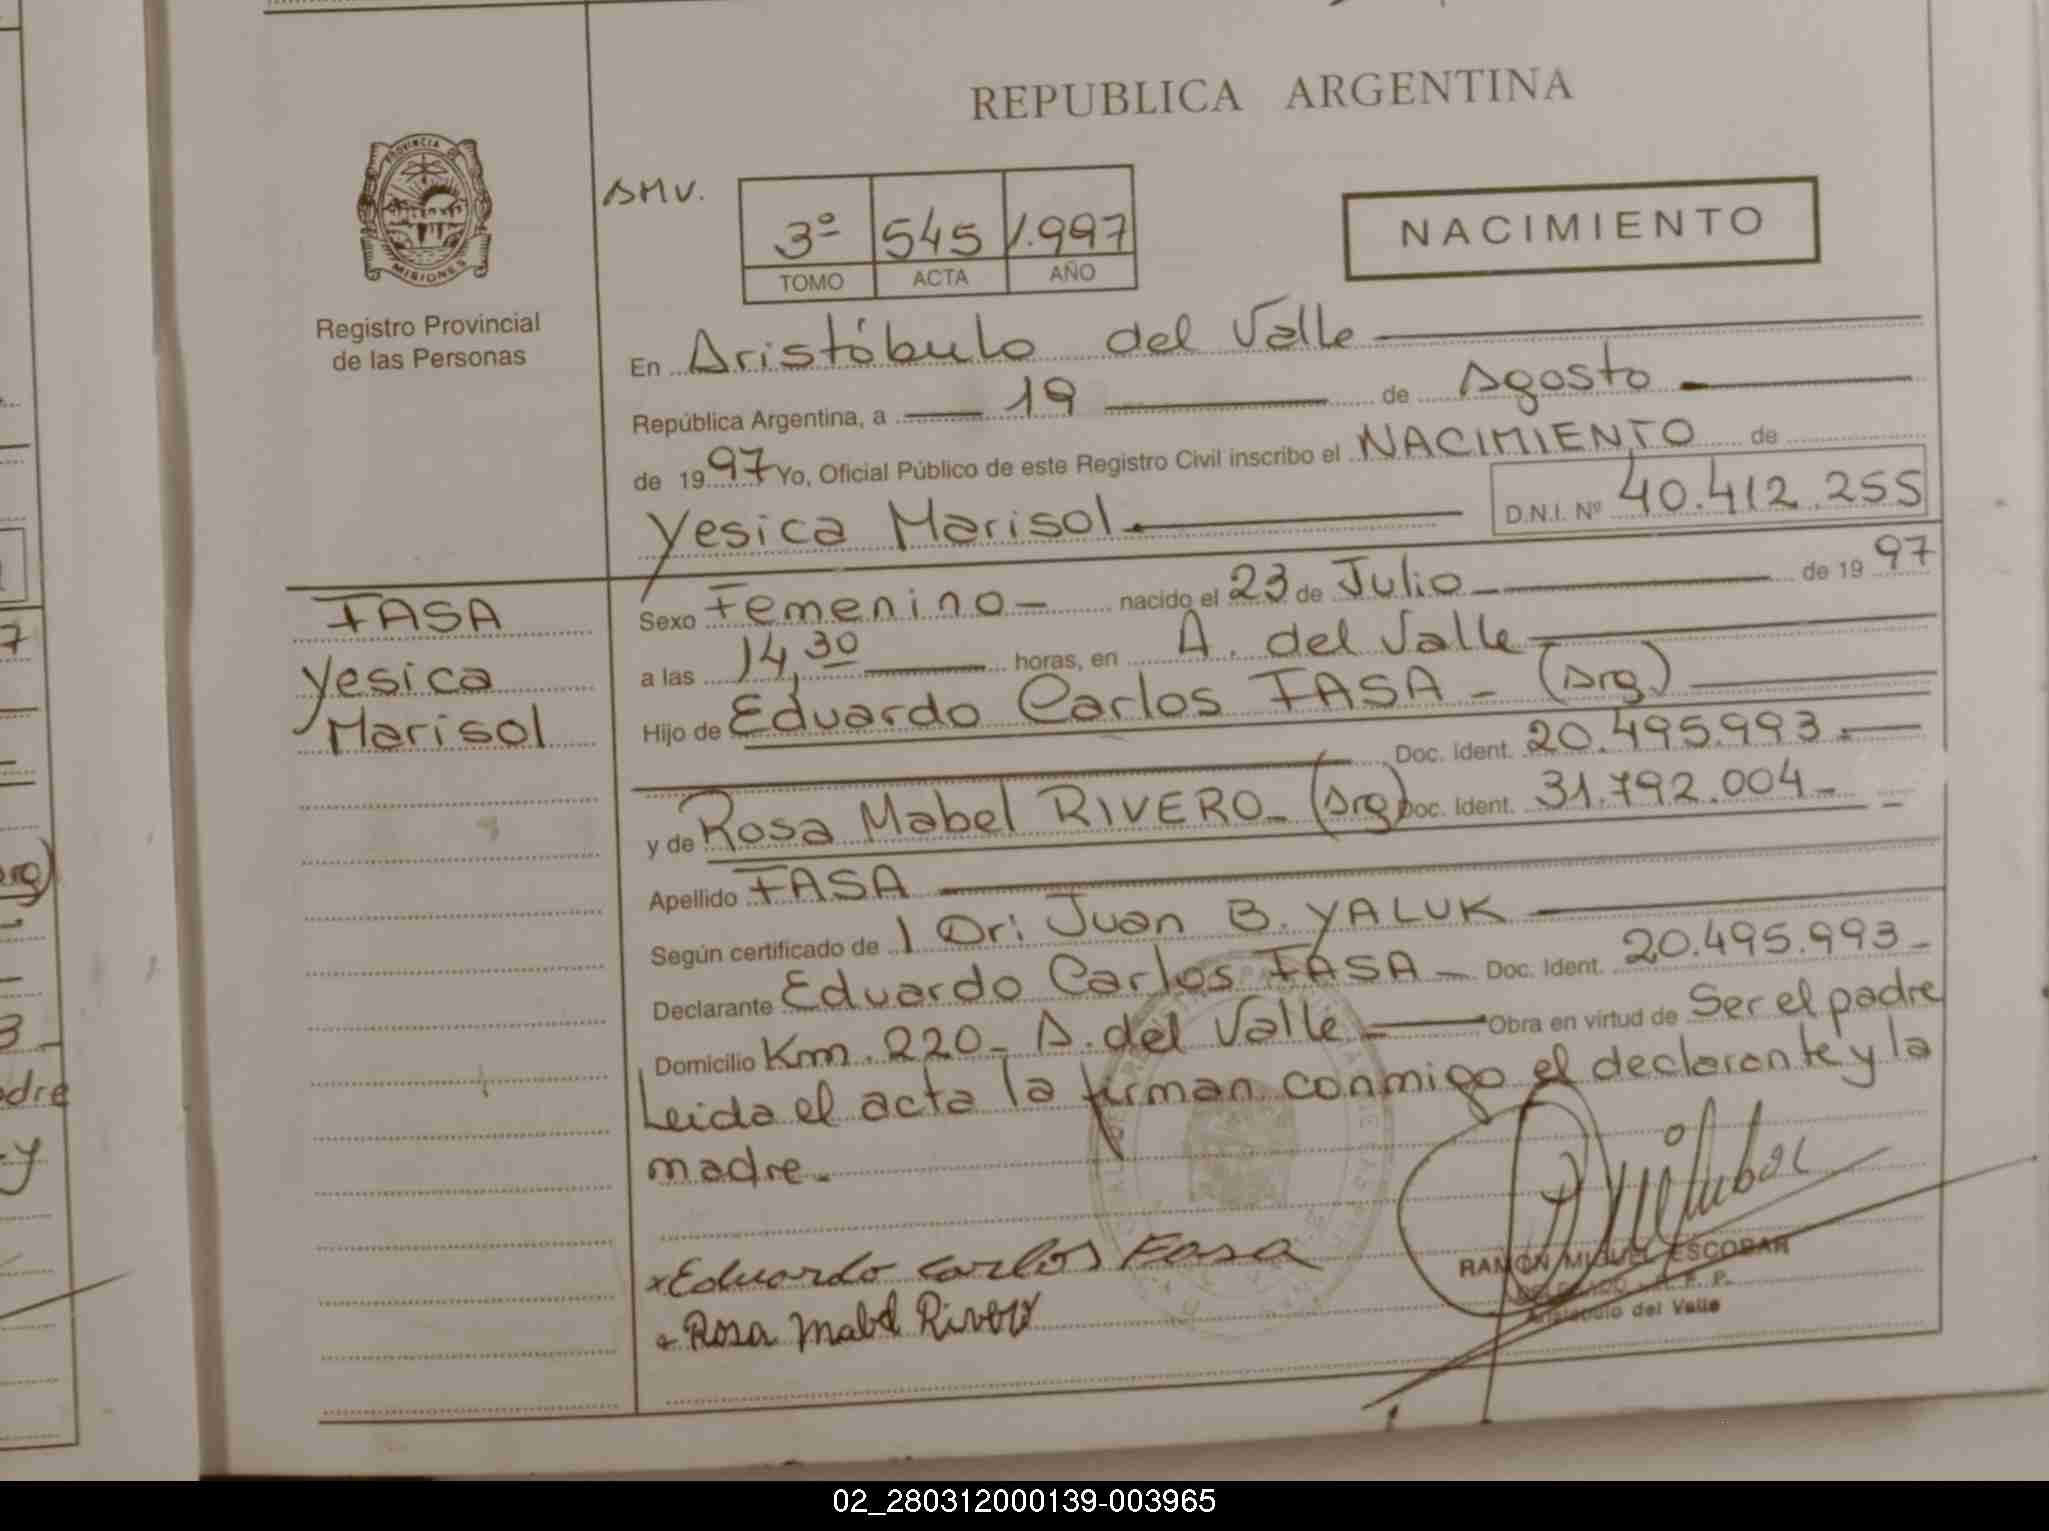 REPUBLICA ARGENTINA
PROVINCIA DE
MISIONES
Registro Provincial
de las Personas
AMV.
3º 545 1.997
TOMO ACTA AÑO
NACIMIENTO
En Aristóbulo del Valle
República Argentina, a 19 de Agosto
de 1997 Yo, Oficial Público de este Registro Civil inscribo el NACIMIENTO de
Yesica Marisol D.N.I. Nº 40.412.255
FASA
Yesica
Marisol
Sexo Femenino - nacido el 23 de Julio - de 1997
a las 14,30 horas, en A. del Valle
Hijo de Eduardo Carlos FASA - (Arg.)
Doc. Ident. 20.495.993.-
y de Rosa Mabel RIVERO - (Arg) Doc. Ident. 31.792.004 - -
Apellido FASA
Según certificado de 1 Dr: Juan B. YALUK
Declarante Eduardo Carlos FASA - Doc. Ident. 20.495.993 -
Domicilio Km. 220 - A. del Valle - Obra en virtud de Ser el padre
Leida el acta la firman conmigo el declarante y la
madre.
x Eduardo Carlos Fasa
x Rosa Mabel Rivero
RAMON MIGUEL ESCOBAR
DELEGADO - R. P. P.
Aristobulo del Valle
02_280312000139-003965